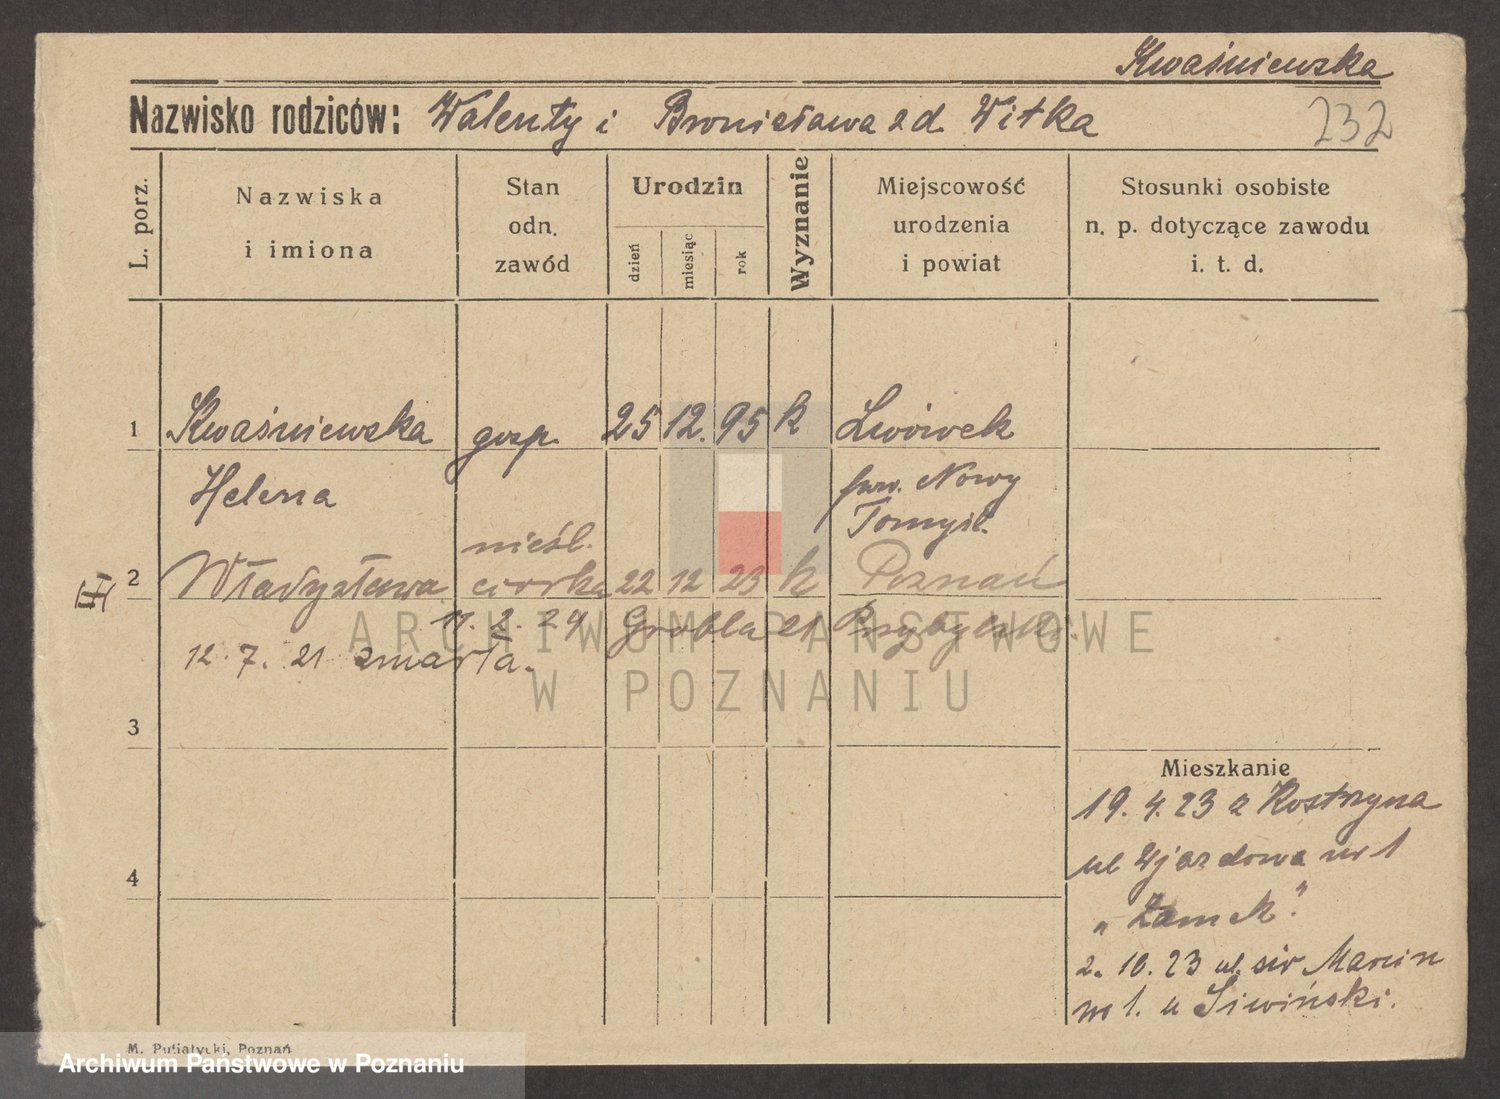 Kwaśniewska
Nazwisko rodziców: Walenty i Bronisława zd. Witka
232
L. porz.
Nazwiska
i imiona
Stan
odn.
zawód
Urodzin
dzień
miesiąc
rok
Wyznanie
Miejscowość
urodzenia
i powiat
Stosunki osobiste
n. p. dotyczące zawodu
i. t. d.
1 Kwaśniewska gosp. 25 12. 95 k Lwówek
Helena Nowy
Tomyśl.
nieśl.
2 Władysława córka 22 12 23 k Poznań
11. 2. 24 Grobla 21
12. 7. 21 zmarła.
3
4
Mieszkanie
19. 4. 23 z Kostrzyna
ul Wjazdowa nr 1
„Zamek”.
2. 10. 23 ul. św Marcin
1. u Siwiński.
M. Putiatycki, Poznań
ARCHIWUM PAŃSTWOWE
W POZNANIU
Archiwum Państwowe w Poznaniu